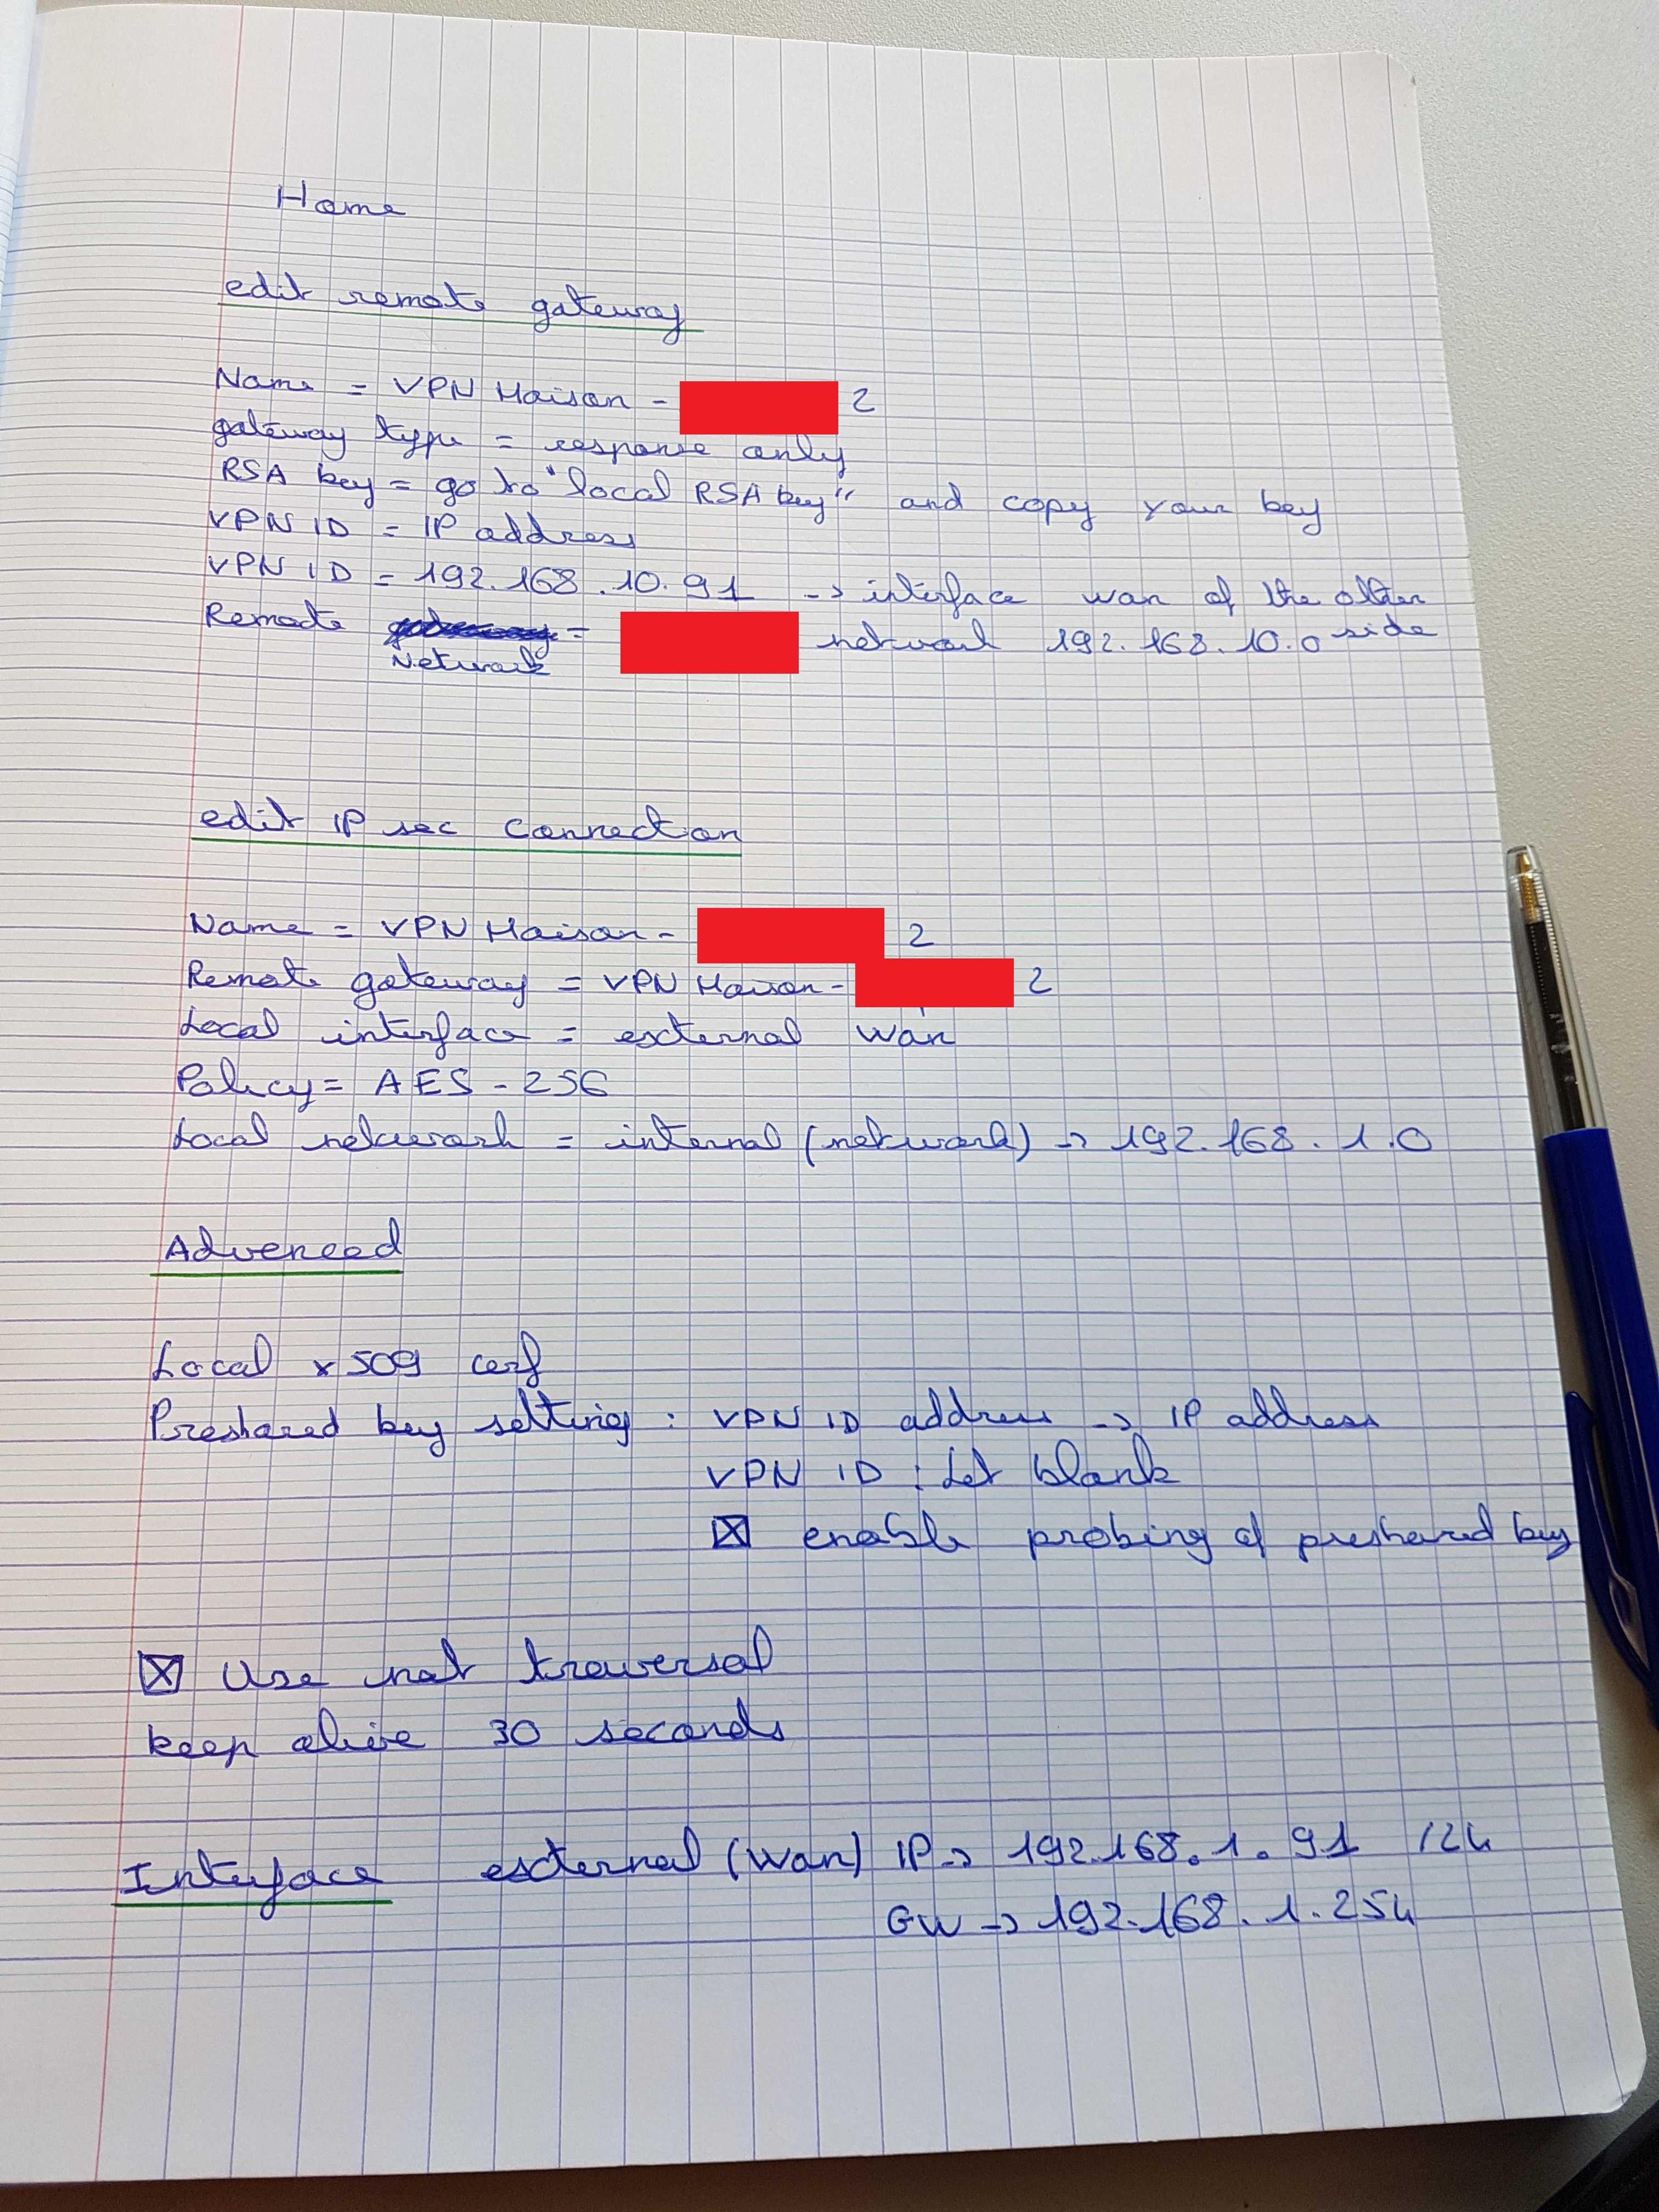 Home
edit remote gateway
Name = VPN Maison - 2
gateway type = response only
RSA key = go to "local RSA key" and copy your key
VPN ID = IP address
VPN ID = 192.168.10.91 -> interface wan of the other side
Remote = network 192.168.10.0
Network
edit IP sec connection
Name = VPN Maison - 2
Remote gateway = VPN Maison - 2
Local interface = external wan
Policy = AES - 256
Local network = internal (network) -> 192.168.1.0
Advenced
Local x509 cerf
Preshared key setting : VPN ID address -> IP address
VPN ID : Let blank
☒ enable probing of preshared key
☒ Use nat traversal
keep alive 30 seconds
Interface external (wan) IP -> 192.168.1.91 /24
GW -> 192.168.1.254